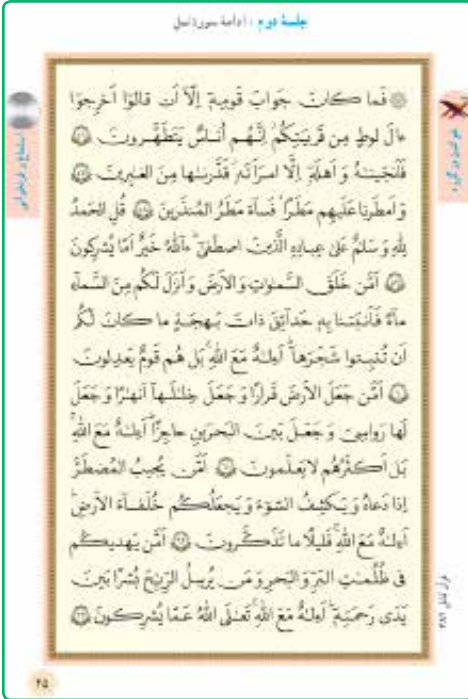 جلسهٔ دوم : ادامهٔ سورهٔ نمل
۞ فَما كانَ جَوابَ قَومِهِ إِلّا أَن قالوا أَخرِجوا
ءالَ لوطٍ مِن قَريَتِكُم إِنَّهُم أُناسٌ يَتَطَهَّرونَ ۵۶
فَأَنجَينـٰهُ وَ أَهلَهُ إِلَّا امرَأَتَهُ قَدَّرنـٰها مِنَ الغـٰبِرينَ ۵۷
وَ أَمطَرنا عَلَيهِم مَطَرًا فَساءَ مَطَرُ المُنذَرينَ ۵۸ قُلِ الحَمدُ
لِلّٰهِ وَ سَلـٰمٌ عَلىٰ عِبادِهِ الَّذينَ اصطَفىٰ ءاللّٰهُ خَيرٌ أَمّا يُشرِكونَ
۵۹ أَمَّن خَلَقَ السَّمـٰوٰتِ وَ الأَرضَ وَ أَنزَلَ لَكُم مِنَ السَّماءِ
ماءً فَأَنبَتنا بِهِ حَدائِقَ ذاتَ بَهجَةٍ ما كانَ لَكُم
أَن تُنبِتوا شَجَرَها أَءِلـٰهٌ مَعَ اللّٰهِ بَل هُم قَومٌ يَعدِلونَ
۶۰ أَمَّن جَعَلَ الأَرضَ قَرارًا وَ جَعَلَ خِلـٰلَها أَنهـٰرًا وَ جَعَلَ
لَها رَواسِيَ وَ جَعَلَ بَينَ البَحرَينِ حاجِزًا أَءِلـٰهٌ مَعَ اللّٰهِ
بَل أَكثَرُهُم لا يَعلَمونَ ۶۱ أَمَّن يُجيبُ المُضطَرَّ
إِذا دَعاهُ وَ يَكشِفُ السّوءَ وَ يَجعَلُكُم خُلَفاءَ الأَرضِ
أَءِلـٰهٌ مَعَ اللّٰهِ قَليلًا ما تَذَكَّرونَ ۶۲ أَمَّن يَهديكُم
فى ظُلُمـٰتِ البَرِّ وَ البَحرِ وَ مَن يُرسِلُ الرِّيٰحَ بُشرًا بَينَ
يَدَى رَحمَتِهِ أَءِلـٰهٌ مَعَ اللّٰهِ تَعـٰلَى اللّٰهُ عَمّا يُشرِكونَ ۶۳
۲۵